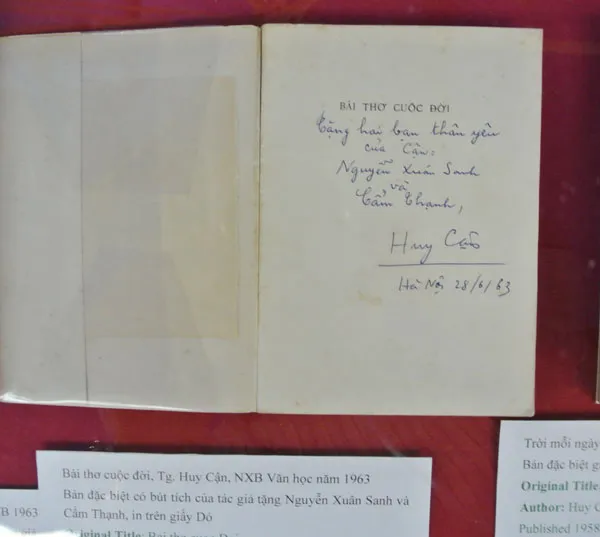 BÀI THƠ CUỘC ĐỜI
Tặng hai bạn thân yêu
của Cận:
Nguyễn Xuân Sanh
và
Cẩm Thạnh,
Huy Cận
Hà Nội 28/6/63
Bài thơ cuộc đời, Tg. Huy Cận, NXB Văn học năm 1963
Bản đặc biệt có bút tích của tác giả tặng Nguyễn Xuân Sanh và
Cẩm Thạnh, in trên giấy Dó
Original Title:
B 1963
Trời mỗi ngày
Bản đặc biệt
Original Title
Author: Huy C
Published 1958